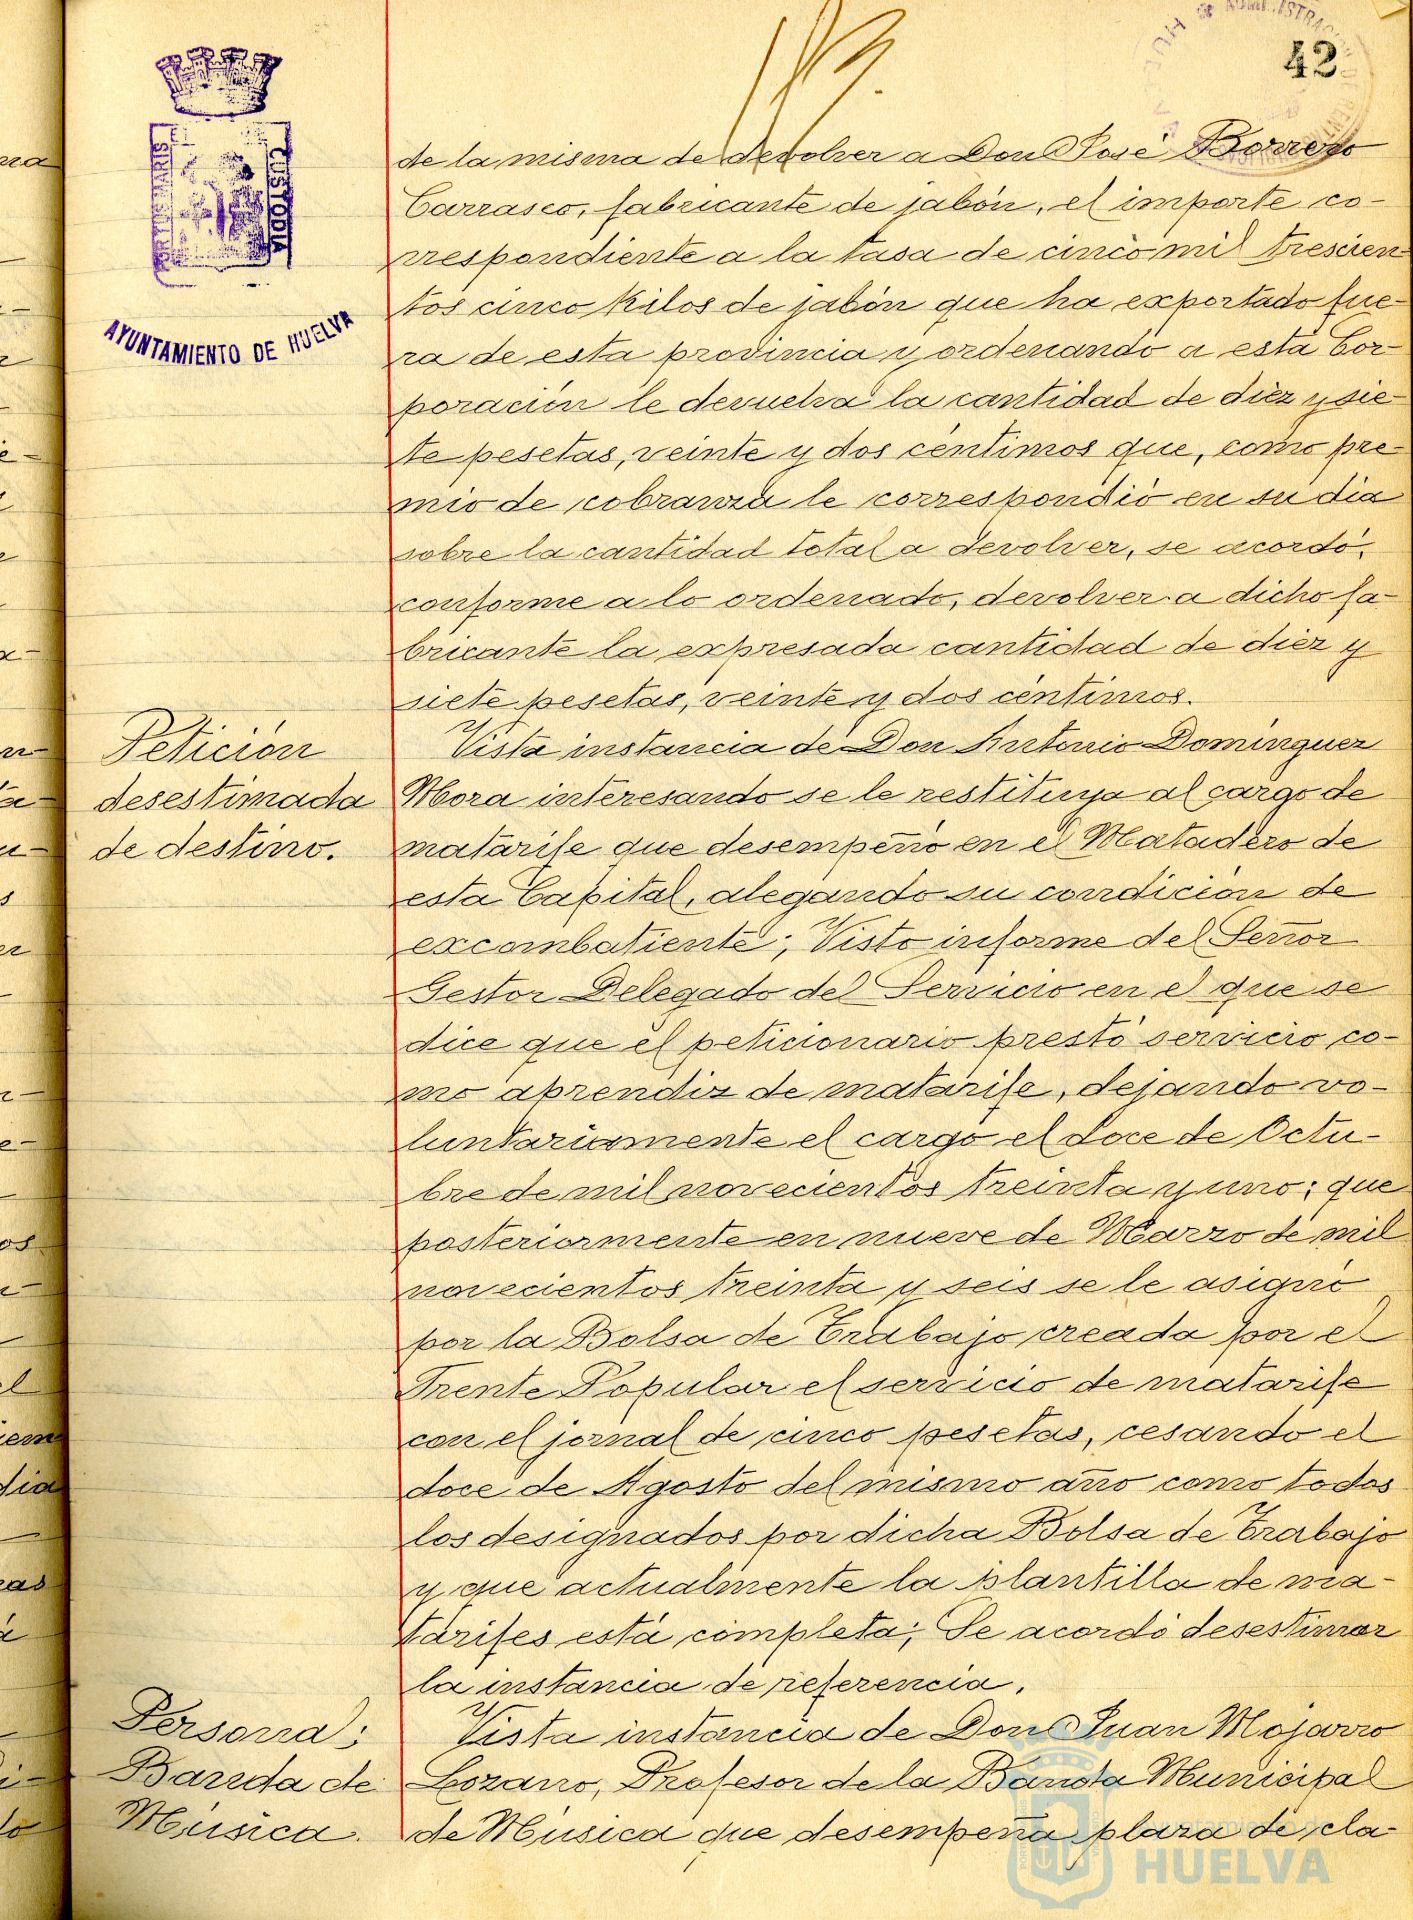 42
PORTUS MARIS
CUSTODIA
AYUNTAMIENTO DE HUELVA
de la misma de devolver a Don José Borrero
Carrasco, fabricante de jabón, el importe co-
rrespondiente a la tasa de cinco mil trescien-
tos cinco kilos de jabón que ha exportado fue-
ra de esta provincia y ordenando a esta Cor-
poración le devuelva la cantidad de diez y sie-
te pesetas, veinte y dos céntimos que, como pre-
mio de cobranza le correspondió en su dia
sobre la cantidad total a devolver, se acordó,
conforme a lo ordenado, devolver a dicho fa-
bricante la expresada cantidad de diez y
siete pesetas, veinte y dos céntimos.
Petición
desestimada
de destino.
Vista instancia de Don Antonio Domínguez
Mora interesando se le restituya al cargo de
matarife que desempeñó en el Matadero de
esta Capital, alegando su condición de
excombatiente; Visto informe del Señor
Gestor Delegado del Servicio en el que se
dice que el peticionario prestó servicio co-
mo aprendiz de matarife, dejando vo-
luntariamente el cargo el doce de Octu-
bre de mil novecientos treinta y uno; que
posteriormente en nueve de Marzo de mil
novecientos treinta y seis se le asignó
por la Bolsa de Trabajo creada por el
Frente Popular el servicio de matarife
con el jornal de cinco pesetas, cesando el
doce de Agosto del mismo año como todos
los designados por dicha Bolsa de Trabajo
y que actualmente la plantilla de ma-
tarifes está completa; Se acordó desestimar
la instancia de referencia.
Personal;
Banda de
Música.
Vista instancia de Don Juan Mojarro
Lozano, Profesor de la Banda Municipal
de Música que desempeña plaza de cla-
HUELVA